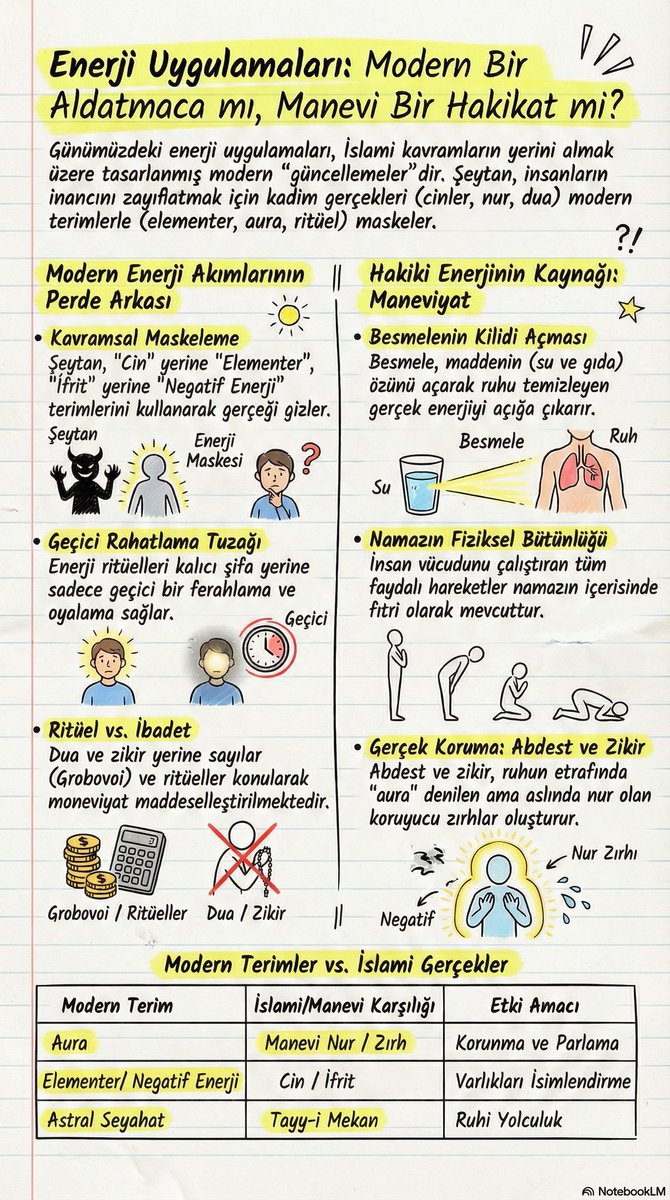 Enerji Uygulamaları: Modern Bir
Aldatmaca mı, Manevi Bir Hakikat mi?
Günümüzdeki enerji uygulamaları, İslami kavramların yerini almak
üzere tasarlanmış modern “güncellemeler”dir. Şeytan, insanların
inancını zayıflatmak için kadim gerçekleri (cinler, nur, dua) modern
terimlerle (elementer, aura, ritüel) maskeler.
?!
Modern Enerji Akımlarının
Perde Arkası
• Kavramsal Maskeleme
Şeytan, "Cin" yerine "Elementer",
"İfrit" yerine "Negatif Enerji"
terimlerini kullanarak gerçeği gizler.
Şeytan
Enerji
Maskesi
?
• Geçici Rahatlama Tuzağı
Enerji ritüelleri kalıcı şifa yerine
sadece geçici bir ferahlama ve
oyalama sağlar.
Geçici
• Ritüel vs. İbadet
Dua ve zikir yerine sayılar
(Grobovoi) ve ritüeller konularak
moneviyat maddeselleştirilmektedir.
$
Grobovoi / Ritüeller
Dua / Zikir
Hakiki Enerjinin Kaynağı:
Maneviyat
• Besmelenin Kilidi Açması
Besmele, maddenin (su ve gıda)
özünü açarak ruhu temizleyen
gerçek enerjiyi açığa çıkarır.
Su
Besmele
Ruh
• Namazın Fiziksel Bütünlüğü
İnsan vücudunu çalıştıran tüm
faydalı hareketler namazın içerisinde
fıtri olarak mevcuttur.
• Gerçek Koruma: Abdest ve Zikir
Abdest ve zikir, ruhun etrafında
"aura" denilen ama aslında nur olan
koruyucu zırhlar oluşturur.
Nur Zırhı
Negatif
Modern Terimler vs. İslami Gerçekler
Modern Terim İslami/Manevi Karşılığı Etki Amacı
Aura Manevi Nur / Zırh Korunma ve Parlama
Elementer/ Negatif Enerji Cin / İfrit Varlıkları İsimlendirme
Astral Seyahat Tayy-i Mekan Ruhi Yolculuk
NotebookLM